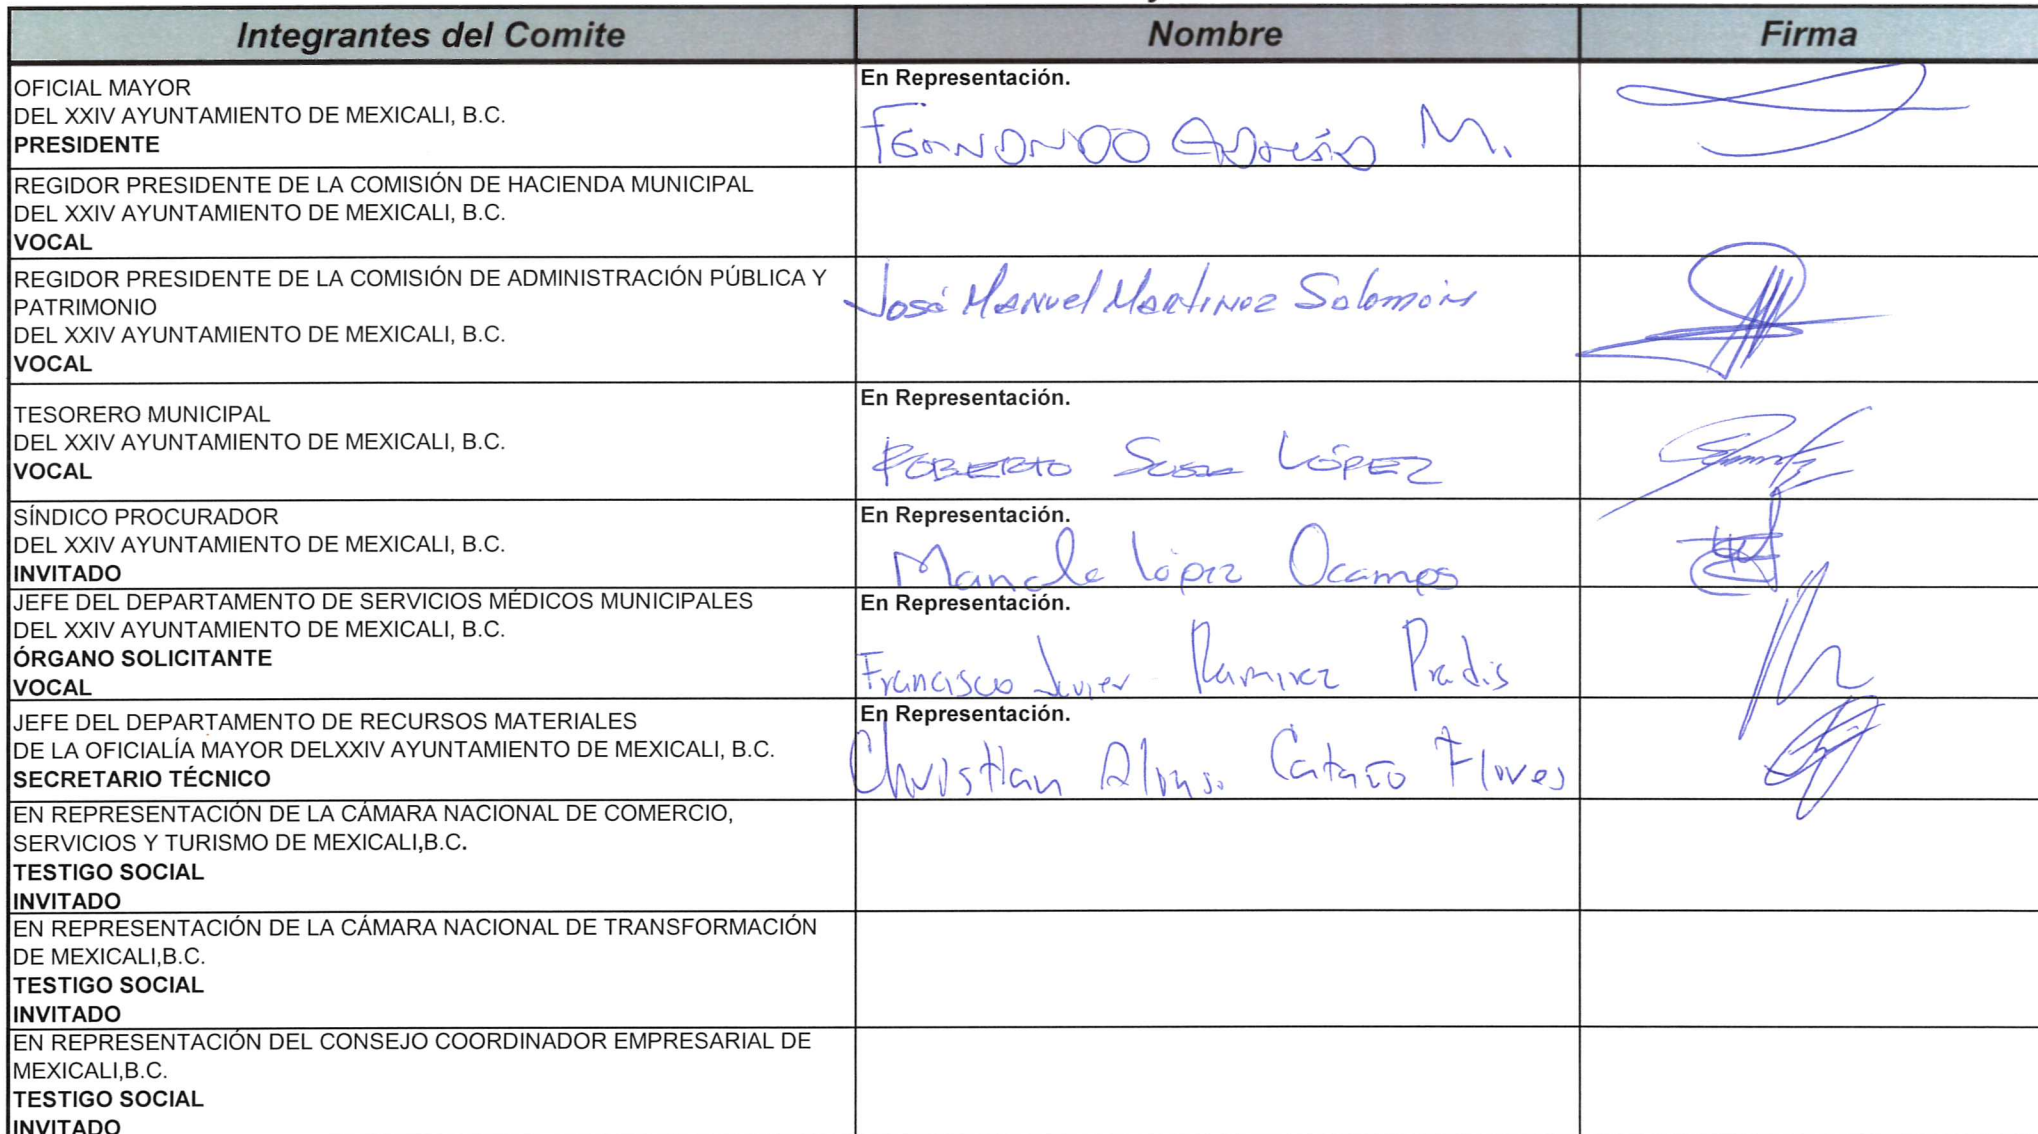 Integrantes del Comite Nombre Firma
OFICIAL MAYOR
DEL XXIV AYUNTAMIENTO DE MEXICALI, B.C.
PRESIDENTE
En Representación.
M.
REGIDOR PRESIDENTE DE LA COMISIÓN DE HACIENDA MUNICIPAL
DEL XXIV AYUNTAMIENTO DE MEXICALI, B.C.
VOCAL
REGIDOR PRESIDENTE DE LA COMISIÓN DE ADMINISTRACIÓN PÚBLICA Y
PATRIMONIO
DEL XXIV AYUNTAMIENTO DE MEXICALI, B.C.
VOCAL
José Manuel Martinez Solomón
TESORERO MUNICIPAL
DEL XXIV AYUNTAMIENTO DE MEXICALI, B.C.
VOCAL
En Representación.
ROBERTO Sosa LÓPEZ
SÍNDICO PROCURADOR
DEL XXIV AYUNTAMIENTO DE MEXICALI, B.C.
INVITADO
En Representación.
López Ocampo
JEFE DEL DEPARTAMENTO DE SERVICIOS MÉDICOS MUNICIPALES
DEL XXIV AYUNTAMIENTO DE MEXICALI, B.C.
ÓRGANO SOLICITANTE
VOCAL
En Representación.
Francisco Javier Ramirez Pradis
JEFE DEL DEPARTAMENTO DE RECURSOS MATERIALES
DE LA OFICIALÍA MAYOR DELXXIV AYUNTAMIENTO DE MEXICALI, B.C.
SECRETARIO TÉCNICO
En Representación.
Christian Alonso Flores
EN REPRESENTACIÓN DE LA CÁMARA NACIONAL DE COMERCIO,
SERVICIOS Y TURISMO DE MEXICALI,B.C.
TESTIGO SOCIAL
INVITADO
EN REPRESENTACIÓN DE LA CÁMARA NACIONAL DE TRANSFORMACIÓN
DE MEXICALI,B.C.
TESTIGO SOCIAL
INVITADO
EN REPRESENTACIÓN DEL CONSEJO COORDINADOR EMPRESARIAL DE
MEXICALI,B.C.
TESTIGO SOCIAL
INVITADO